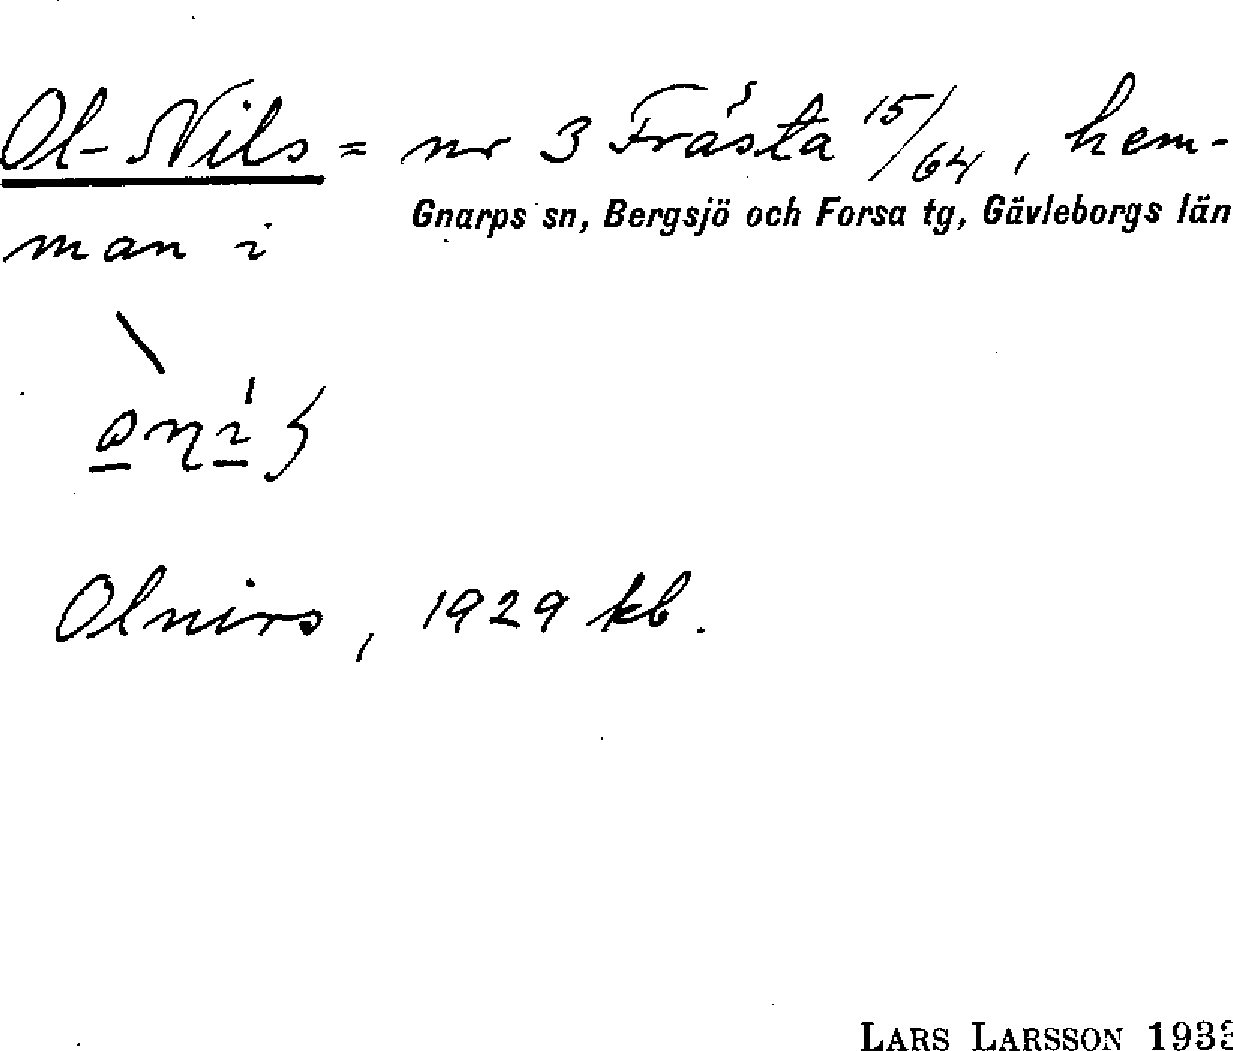 Ol-Nils = nr 3 Frästa 15/64, hem-
Gnarps sn, Bergsjö och Forsa tg, Gävleborgs län
man i
Olnirs, 1929 kb.
LARS LARSSON